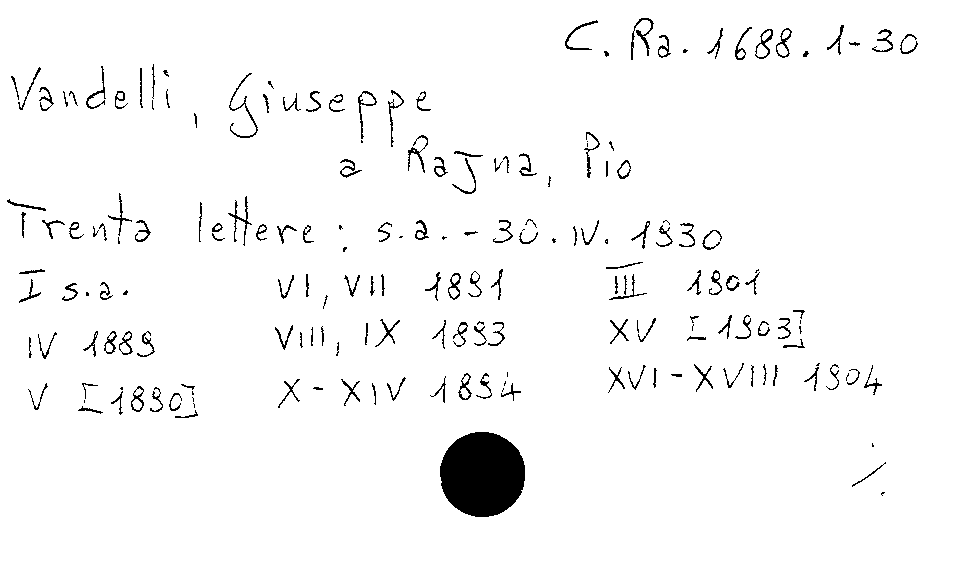 C. Ra. 1688. 1-30
Vandelli, Giuseppe
a Rajna, Pio
Trenta lettere: s.a. - 30. IV. 1930
I s.a.
IV 1889
V [1890]
VI, VII 1891
VIII, IX 1893
X - XIV 1894
III 1901
XV [1903]
XVI - XVIII 1904
./.